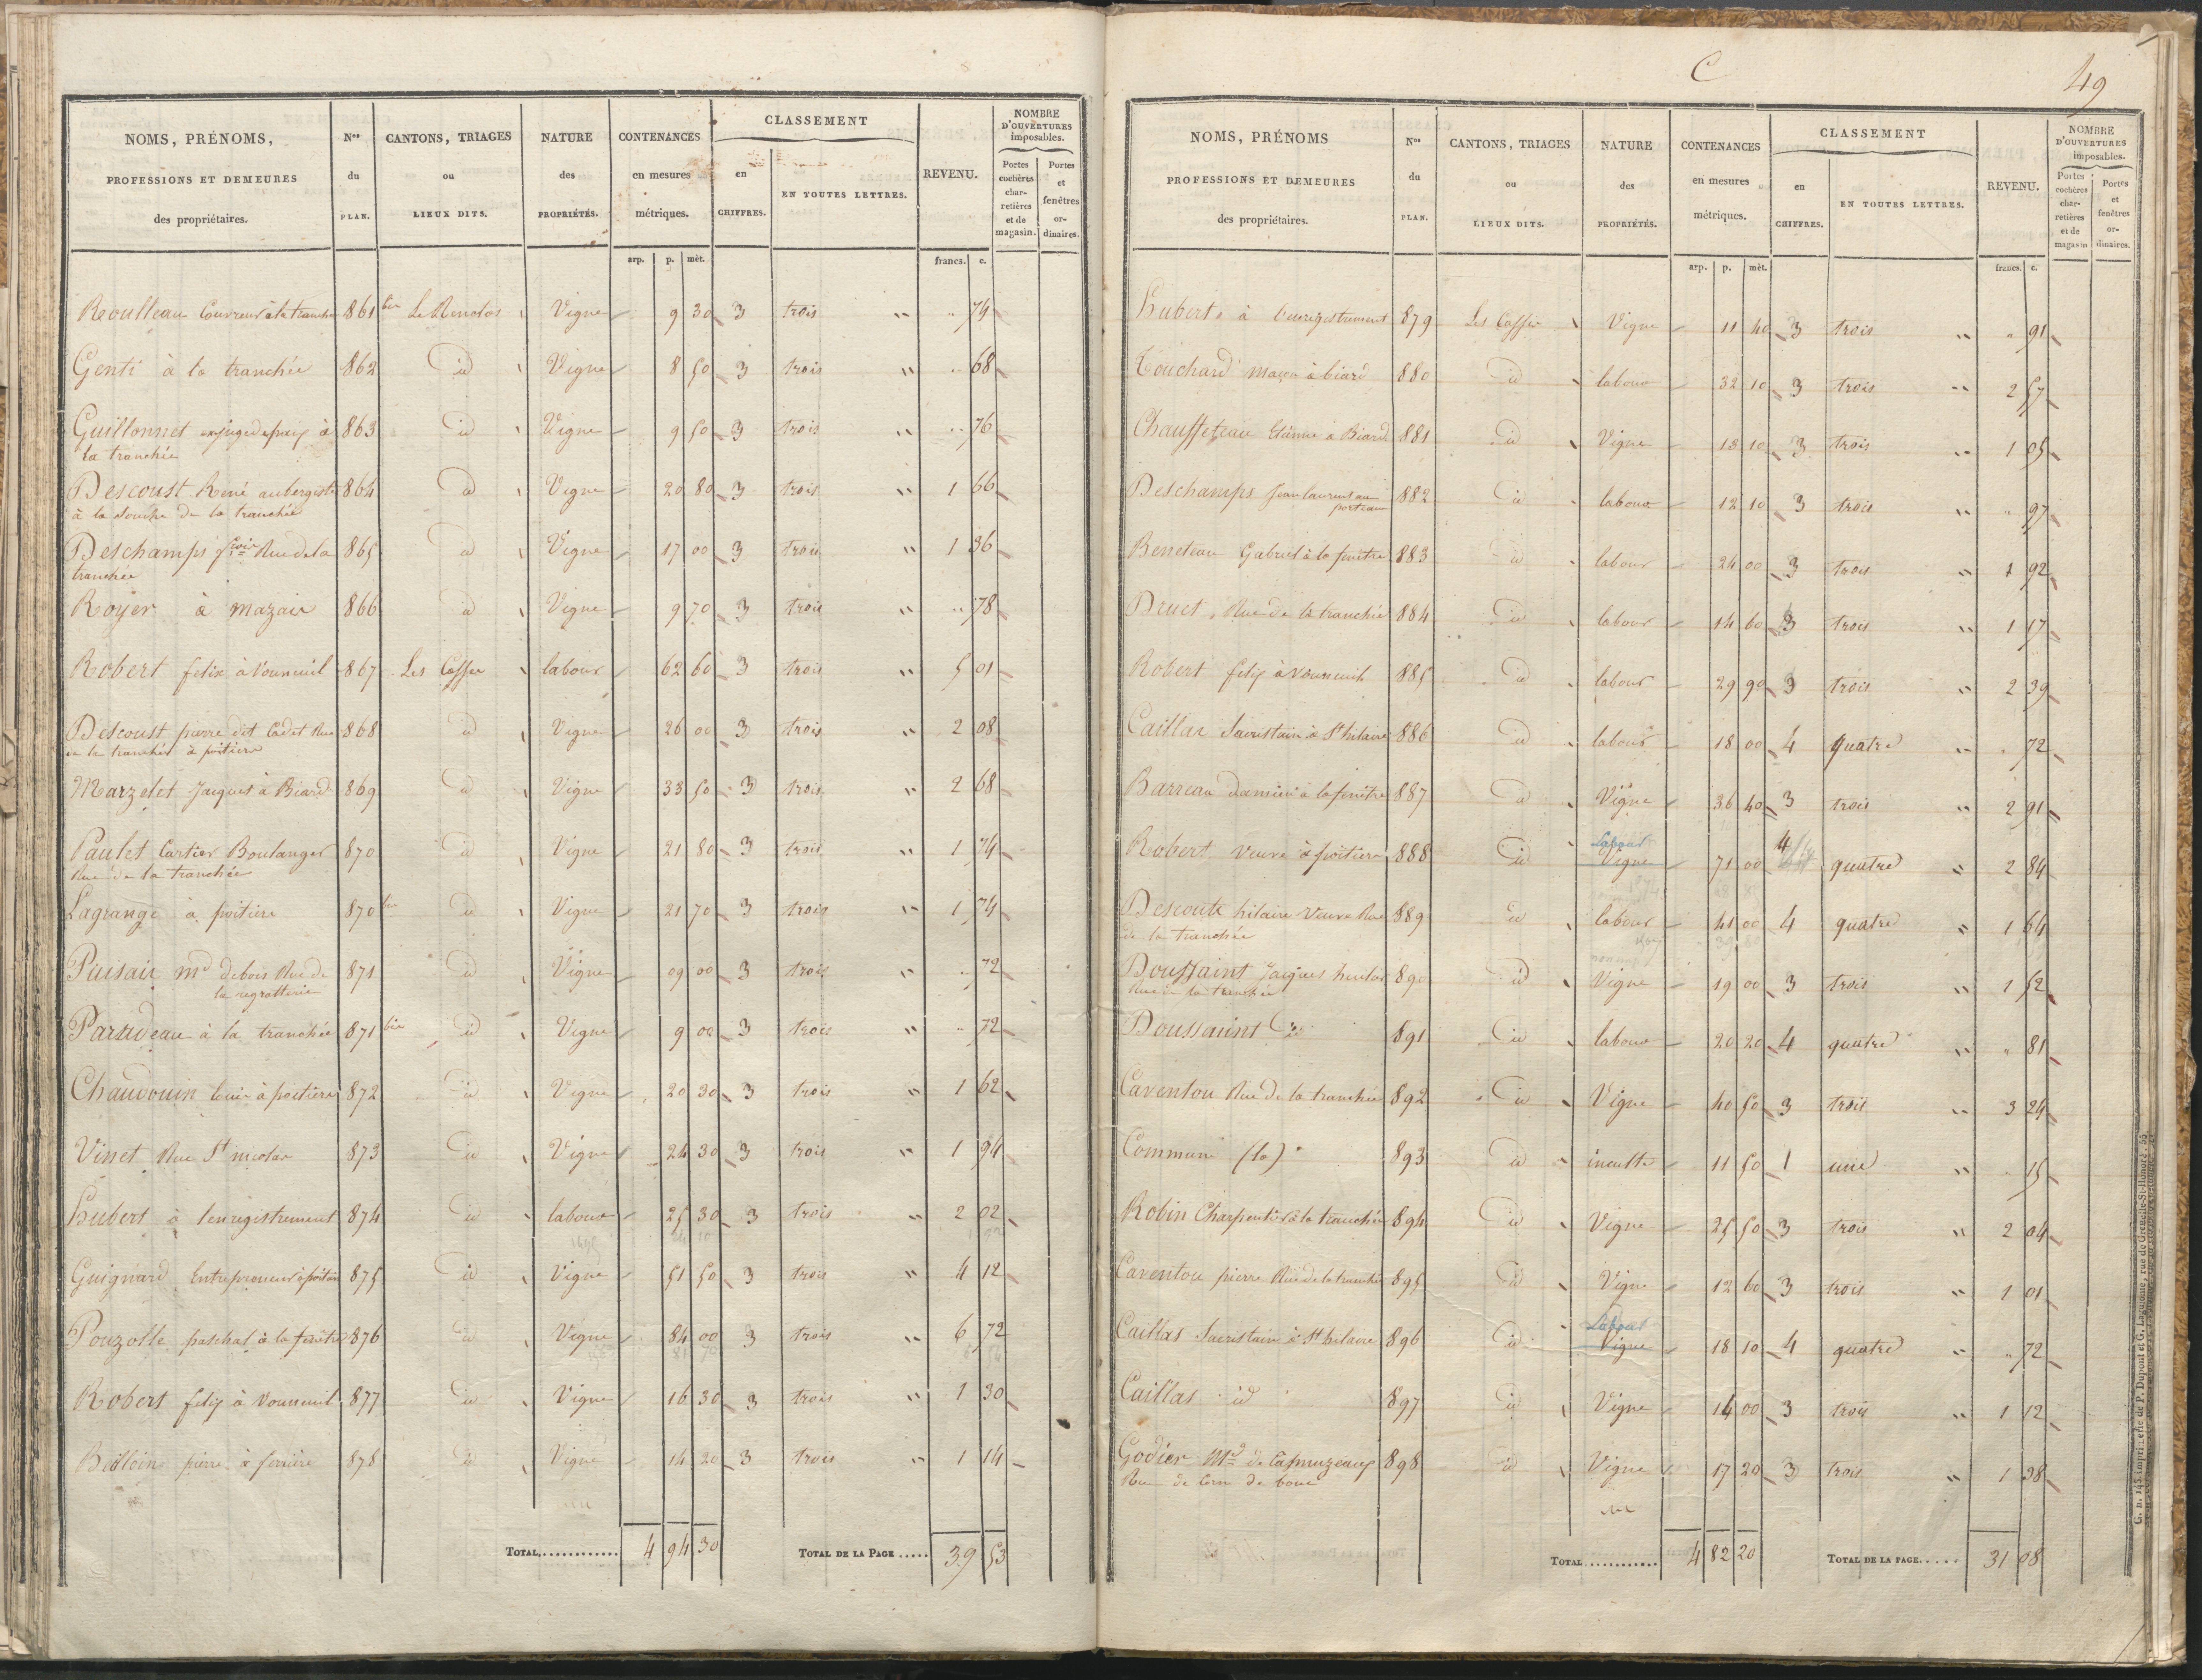 NOMS, PRÉNOMS, PROFESSIONS ET DEMEURES des propriétaires. | Nos du PLAN. | CANTONS, TRIAGES ou LIEUX DITS. | NATURE des PROPRIÉTÉS. | CONTENANCES en mesures métriques. | CLASSEMENT en CHIFFRES. | EN TOUTES LETTRES. | REVENU. | NOMBRE D'OUVERTURES imposables. Portes cochères charretières et de magasin. | Portes et fenêtres ordinaires.
arp. | p. | mèt. | francs. | c.
Roulleau Couvreur à la tranchée 861 bis Vigne 9 30 3 trois " " 74
Genti à la tranchée 862 id Vigne 8 50 3 trois " " 68
Guillonnet à 863 id Vigne 9 50 3 trois " " 76
la tranchée
Descoust René aubergiste 864 id Vigne 20 80 3 trois " 1 66
à la de la tranchée
Deschamps Rue de la 865 id Vigne 17 00 3 trois " 1 36
tranchée
Royer à mazais 866 id Vigne 9 70 3 trois " " 78
Robert felix à Vouneuil 867 Les labour 62 60 3 trois " 5 01
Descoust pierre dit Cadet Rue 868 id Vigne 26 00 3 trois " 2 08
de la tranchée à poitiers
Marzelet Jacques à Biard 869 id Vigne 33 50 3 trois " 2 68
Paulet Cartier Boulanger 870 id Vigne 21 80 3 trois " 1 74
Rue de la tranchée
Lagrange à poitiers 870 bis id Vigne 21 70 3 trois " 1 74
Puisais md de bois Rue de 871 id Vigne 09 00 3 trois " " 72
la regratterie
à la tranchée 871 bis id Vigne 9 00 3 trois " " 72
Chaudouin louis à poitiers 872 id Vigne 20 30 3 trois " 1 62
Vinet Rue St nicolas 873 id Vigne 24 30 3 trois " 1 94
Hubert à l'enregistrement 874 id labour 25 30 3 trois " 2 02
Guignard Entrepreneur à poitiers 875 id Vigne 51 50 3 trois " 4 12
Pouzolle paschal à la fenêtre 876 id Vigne 84 00 3 trois " 6 72
Robert felix à Vouneuil 877 id Vigne 16 30 3 trois " 1 30
pierre à 878 id Vigne 14 20 3 trois " 1 14
TOTAL............ 4 94 30 TOTAL DE LA PAGE..... 39 53
C
49
NOMS, PRÉNOMS PROFESSIONS ET DEMEURES des propriétaires. | Nos du PLAN. | CANTONS, TRIAGES ou LIEUX DITS. | NATURE des PROPRIÉTÉS. | CONTENANCES en mesures métriques. | CLASSEMENT en CHIFFRES. | EN TOUTES LETTRES. | REVENU. | NOMBRE D'OUVERTURES imposables. Portes cochères charretières et de magasin | Portes et fenêtres ordinaires.
arp. | p. | mèt. | francs. | c.
Hubert à l'enregistrement 879 Les Vigne 11 40 3 trois " " 91
Touchard maçon à biard 880 id labour 32 10 3 trois " 2 57
Chauffeteau Etienne à Biard 881 id Vigne 10 3 trois " 1 05
Deschamps Jean laurent au 882 id labour 12 10 3 trois " " 97
porteau
Beneteau Gabriel à la fenêtre 883 id labour 24 00 3 trois " 1 92
Druet, Rue de la tranchée 884 id labour 14 60 3 trois " 1 17
Robert felix à Vouneuil 885 id labour 29 90 3 trois " 2 39
Caillas Sacristain à St hilaire 886 id labour 18 00 4 quatre " " 72
Barreau damien à la fenêtre 887 id Vigne 36 40 3 trois " 2 91
Labour
Robert Veuve à poitiers 888 id Vigne 71 00 4 quatre " 2 84
Descoute hilaire Veuve Rue 889 id labour 41 00 4 quatre " 1 64
de la tranchée
Doussaint Jacques 890 id Vigne 19 00 3 trois " 1 52
Rue de la tranchée
Doussaint id 891 id labour 20 20 4 quatre " " 81
Caventou Rue de la tranchée 892 id Vigne 40 50 3 trois " 3 24
Commune (la) 893 id inculte 11 50 1 une " " 15
Robin Charpentier à la tranchée 894 id Vigne 25 50 3 trois " 2 04
Caventou pierre Rue de la tranchée 895 id Vigne 12 60 3 trois " 1 01
Labour
Caillas Sacristain à St hilaire 896 id Vigne 18 10 4 quatre " " 72
Caillas id 897 id Vigne 14 00 3 trois " 1 12
Godier Md de 898 id Vigne 17 20 3 trois " 1 38
Rue de Corne de bouc
TOTAL............ 4 82 20 TOTAL DE LA PAGE..... 31 08
G. n. 148. Imprimerie de P. Dupont et G. Laguionie, rue de Grenelle-St-Honoré, 55.